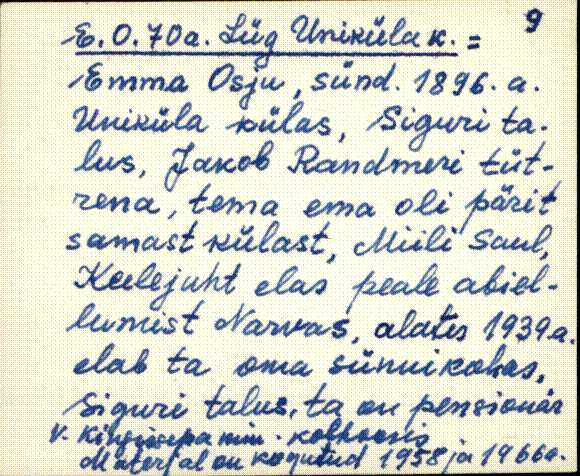 9
E. O. 70a. Lüg Uniküla k. =
Emma Osju, sünd. 1896. a.
Uniküla külas, Siguri ta-
lus, Jakob Randmeri tüt-
rena, tema ema oli pärit
samast külast, Miili Saul,
Keelejuht elas peale abiel-
lumist Narvas, alates 1939a.
elab ta oma sünnikohas,
Siguri talus, ta on pensionär
V. Kingissepa nim. kolhoosis
Materjal on kogutud 1958 ja 1966a.